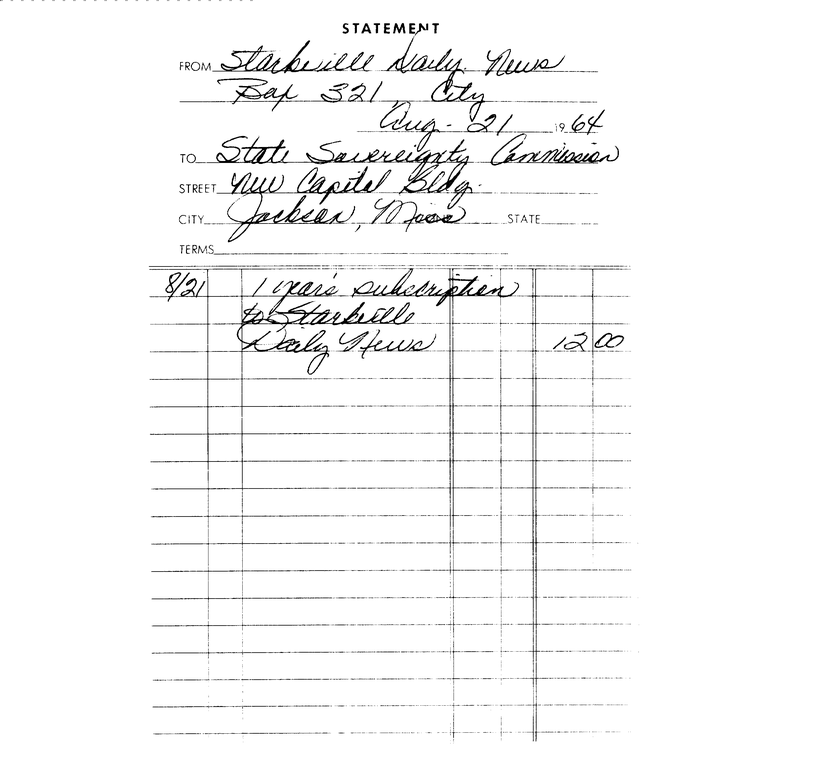 STATEMENT
FROM Starkville Daily News
Box 321 City
Aug. 21 1964
TO State Sovereignty Commission
STREET New Capitol Bldg.
CITY Jackson, Miss STATE
TERMS
8/21 1 year's subscription
to Starkville
Daily News 12 00